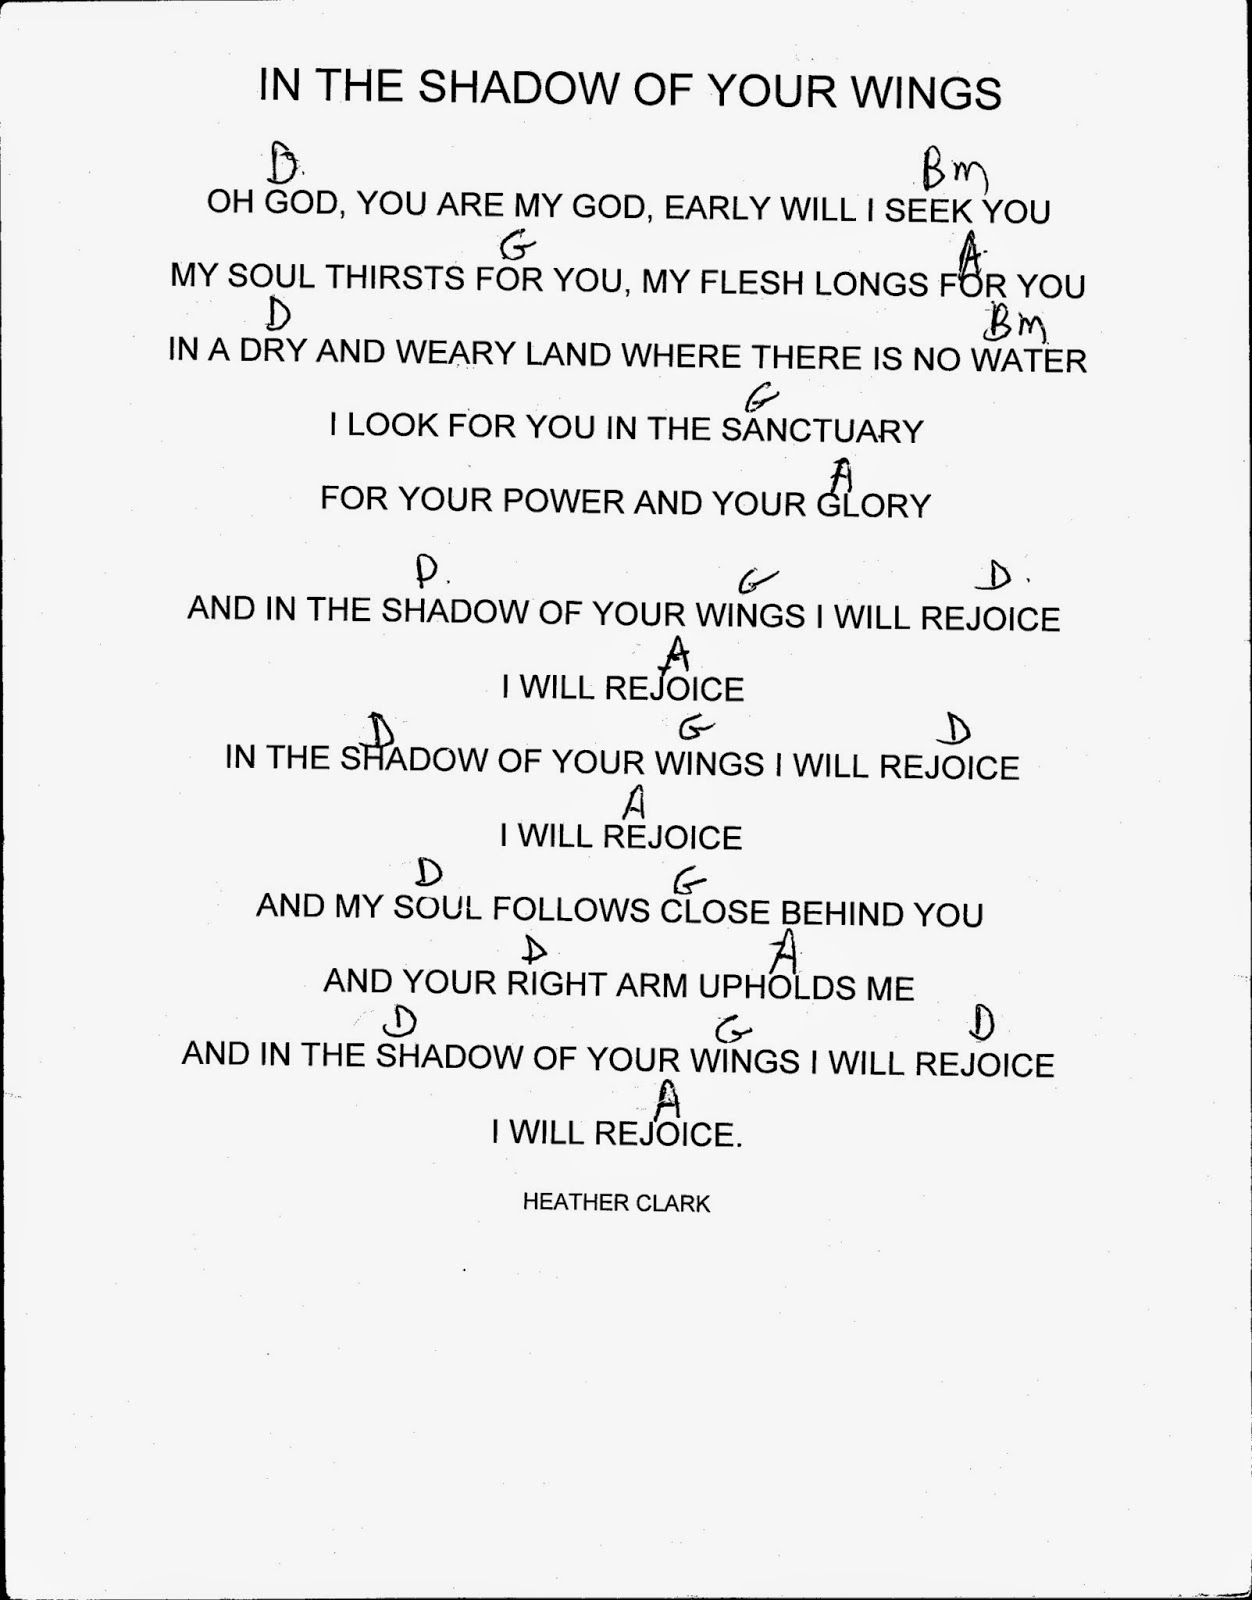 IN THE SHADOW OF YOUR WINGS
D Bm
OH GOD, YOU ARE MY GOD, EARLY WILL I SEEK YOU
G A
MY SOUL THIRSTS FOR YOU, MY FLESH LONGS FOR YOU
D Bm
IN A DRY AND WEARY LAND WHERE THERE IS NO WATER
G
I LOOK FOR YOU IN THE SANCTUARY
A
FOR YOUR POWER AND YOUR GLORY
D. G D.
AND IN THE SHADOW OF YOUR WINGS I WILL REJOICE
A
I WILL REJOICE
D G D
IN THE SHADOW OF YOUR WINGS I WILL REJOICE
A
I WILL REJOICE
D G
AND MY SOUL FOLLOWS CLOSE BEHIND YOU
D A
AND YOUR RIGHT ARM UPHOLDS ME
D G D
AND IN THE SHADOW OF YOUR WINGS I WILL REJOICE
A
I WILL REJOICE.
HEATHER CLARK